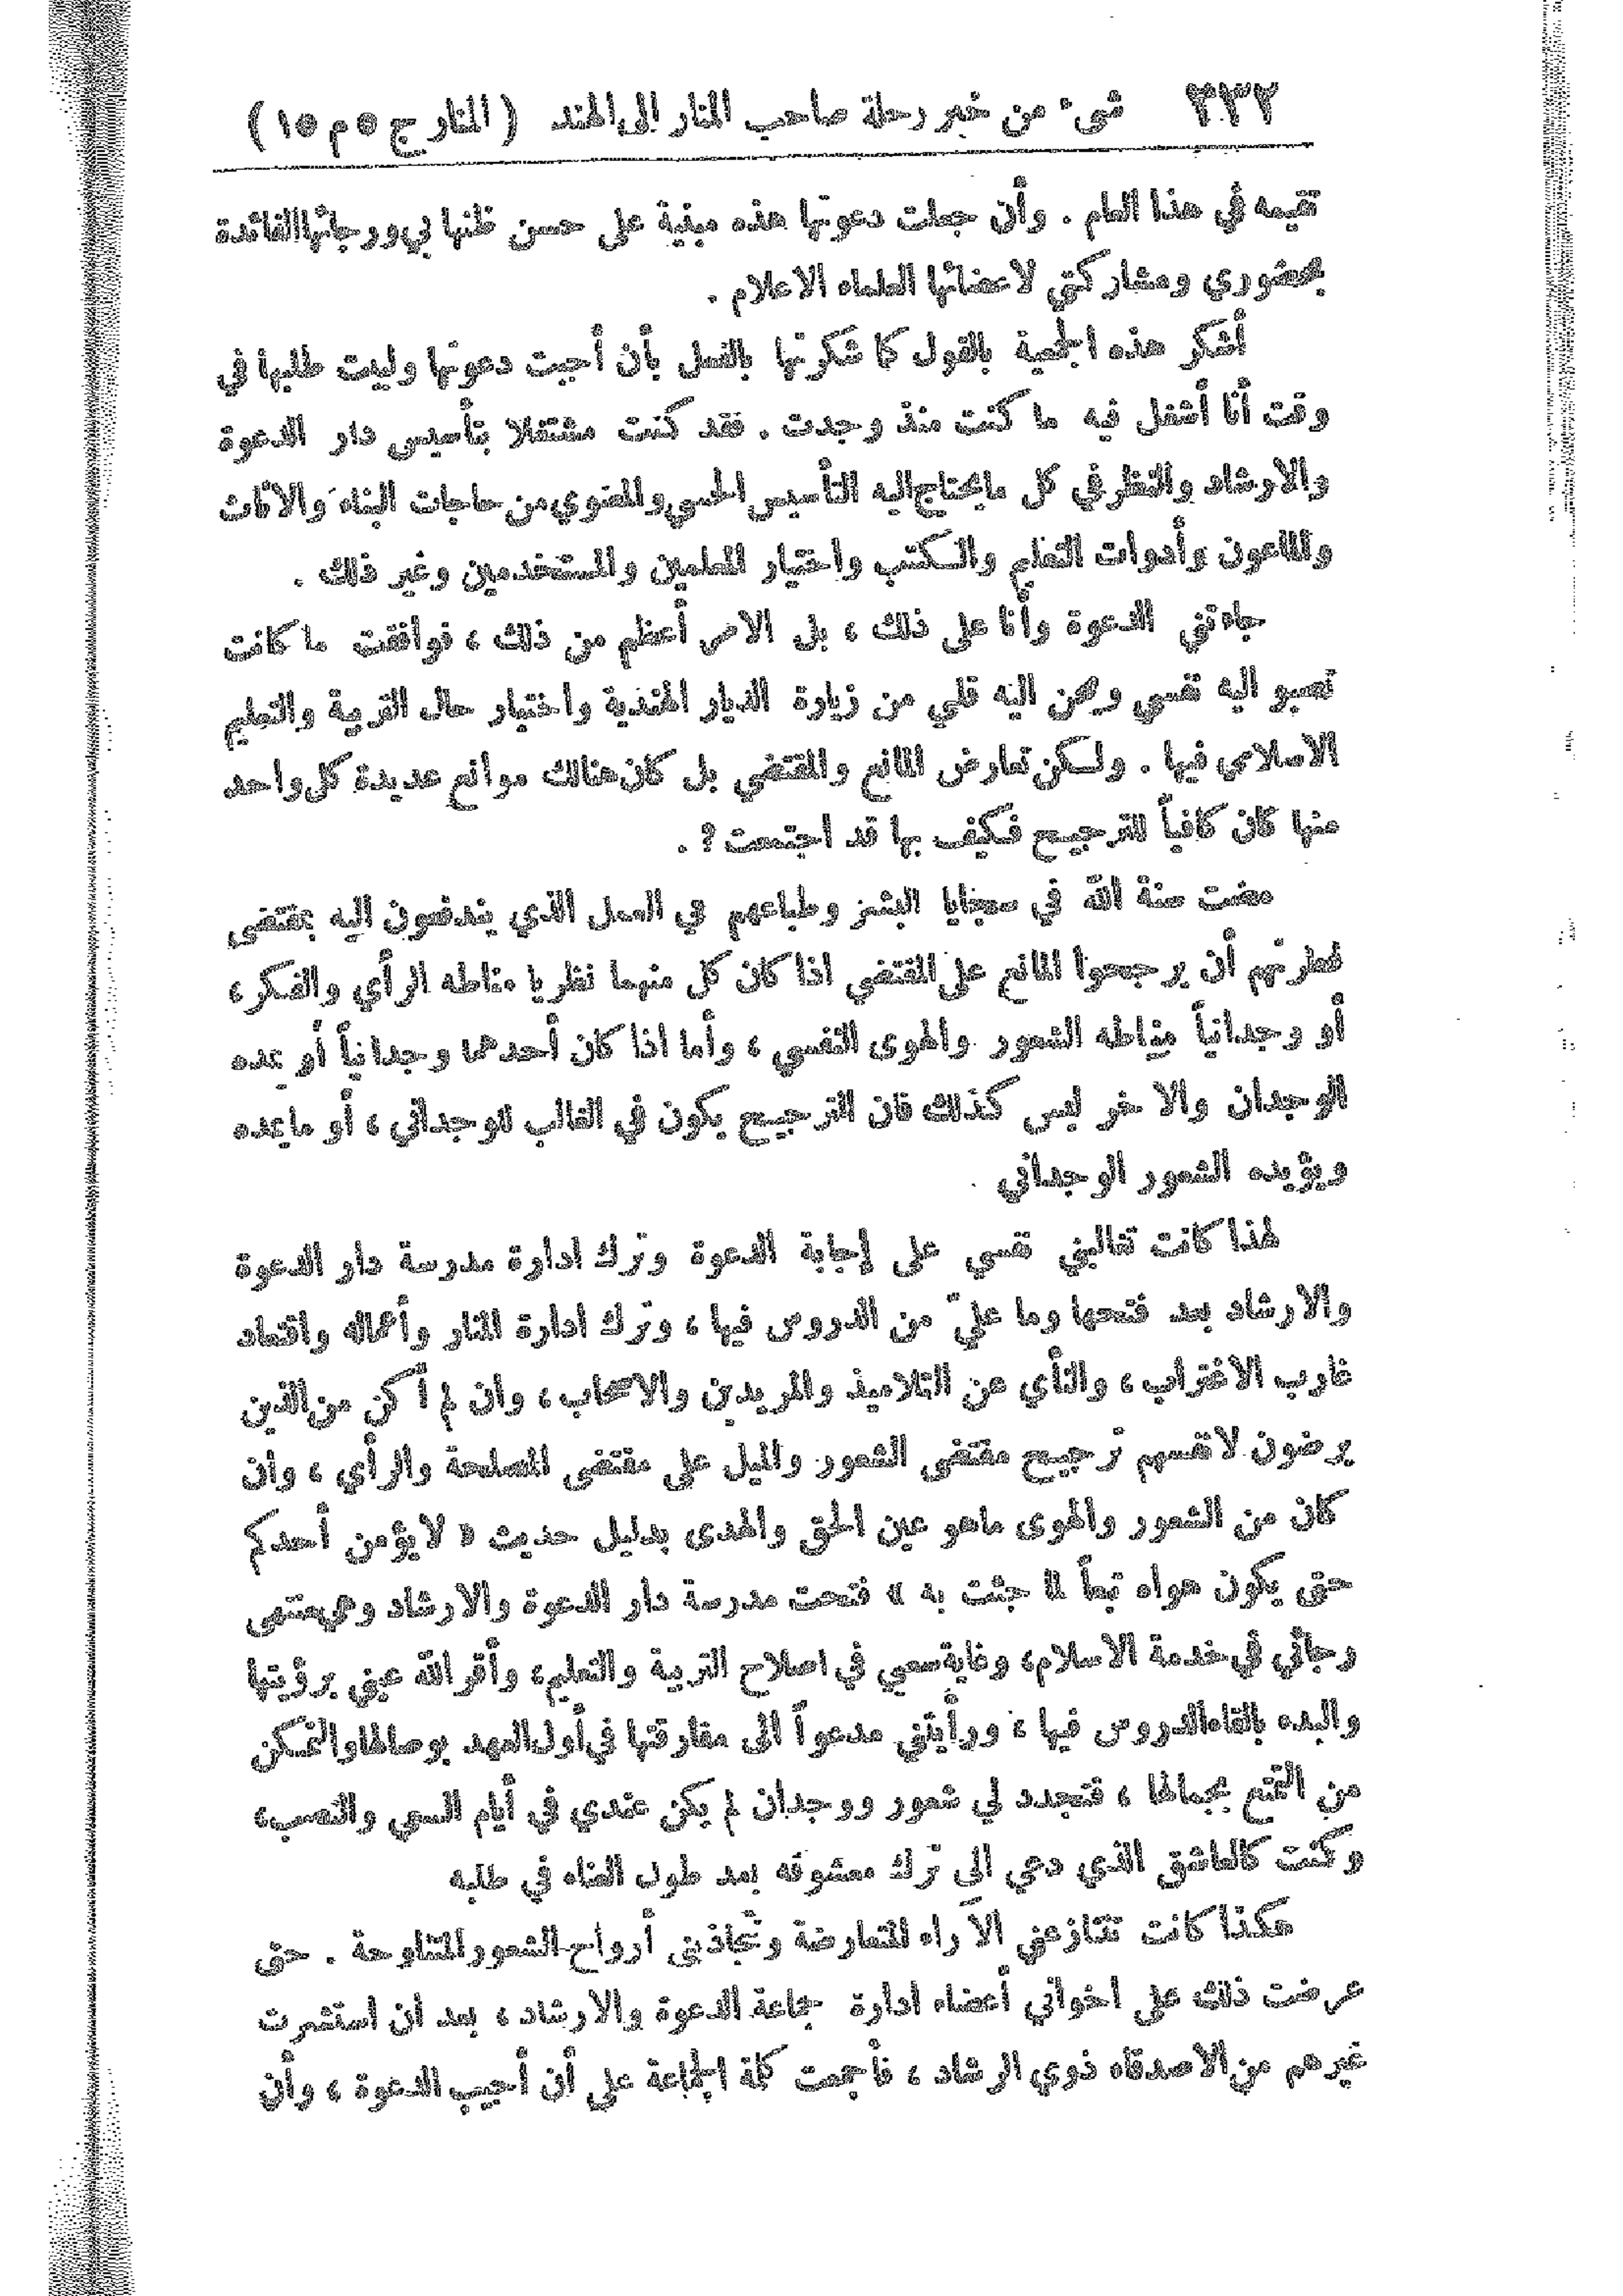 ٣٣٢ شيء من خبر رحلة صاحب المنار إلى الهند ( المنار ج ٥ م ١٥ )
تقيمه في هذا العام . وأن جعلت دعوتها هذه مبنية على حسن ظنها بي ورجائها الفائدة
بحضوري ومشاركتي لاعضائها العلماء الاعلام .
أشكر هذه الجمعية بالقول كما شكرتها بالفعل بأن أجبت دعوتها ولبيت طلبها في
وقت أنا أشغل فيه ما كنت منذ وجدت . فقد كنت مشتغلا بتأسيس دار الدعوة
والارشاد والنظر في كل ما يحتاج اليه التأسيس الحسي والمعنوي من حاجات البناء والاثاث
والماعون وأدوات التعليم والكتب واختيار المعلمين والمستخدمين وغير ذلك .
جاءتني الدعوة وأنا على ذلك ، بل الامر أعظم من ذلك ، فوافقت ما كانت
تصبو اليه نفسي ويحن اليه قلبي من زيارة الديار الهندية واختبار حال التربية والتعليم
الاسلامي فيها . ولكن تعارض المانع والمقتضي بل كان هنالك موانع عديدة كل واحد
منها كان كافياً للترجيح فكيف بها قد اجتمعت ؟ .
مضت سنة الله في سجايا البشر وطباعهم في العمل الذي يندفعون اليه بمقتضى
فطرتهم أن يرجحوا المانع على المقتضي اذا كان كل منهما نظريا مناطه الرأي والفكر ،
أو وجدانياً مناطه الشعور والهوى النفسي ، وأما اذا كان أحدهما وجدانياً أو يمده
الوجدان والآخر ليس كذلك فان الترجيح يكون في الغالب للوجداني ، أو ما يمده
ويؤيده الشعور الوجداني
لهذا كانت تغالبني نفسي على إجابة الدعوة وترك ادارة مدرسة دار الدعوة
والارشاد بعد فتحها وما عليّ من الدروس فيها ، وترك ادارة المنار وأعماله واقتعاد
غارب الاغتراب ، والنأي عن التلاميذ والمريدين والاصحاب ، وان لم أكن من الذين
يرضون لانفسهم ترجيح مقتضى الشعور والميل على مقتضى المصلحة والرأي ، وان
كان من الشعور والهوى ماهو عين الحق والهدى بدليل حديث « لا يؤمن أحدكم
حتى يكون هواه تبعاً لما جئت به » فتحت مدرسة دار الدعوة والارشاد وهي منتهى
رجائي في خدمة الاسلام ، وغاية سعيي في اصلاح التربية والتعليم ، وأقر الله عيني برؤيتها
والبدء بالقاء الدروس فيها ، ورأيتني مدعواً الى مفارقتها في أول العهد بوصالها والتمكن
من التمتع بجمالها ، فتجدد لي شعور ووجدان لم يكن عندي في أيام السعي والنصب ،
وكنت كالعاشق الذي دعي الى ترك معشوقه بعد طول العناء في طلبه
هكذا كانت تتنازعني الآراء المتعارضة وتتجاذبني أرواح الشعور المتناوحة . حتى
عرضت ذلك على اخواني أعضاء ادارة جماعة الدعوة والارشاد ، بعد أن استشرت
غيرهم من الاصدقاء ذوي الرشاد ، فأجمعت كلمة الجماعة على أن أجيب الدعوة ، وأن